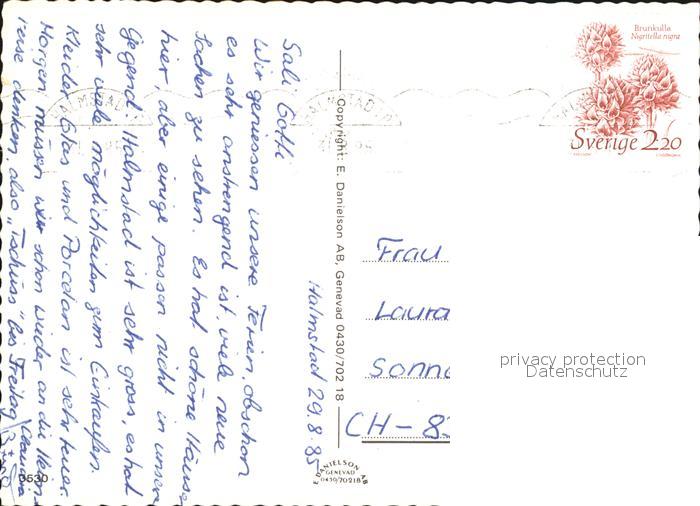 Halmstad 29.8.85
Sali Gotti
Wir geniessen unsere Ferien, obschon
es sehr anstrengend ist, viele neue
Sachen zu sehen. Es hat schöne Häuser
hier, aber einige passen nicht in unsere
Gegend. Halmstad ist sehr gross, es hat
sehr viele möglichkeiten zum Einkaufen.
Kleider, Glas und Porcelan ist sehr teuer.
Morgen müssen wir schon wieder an die Heim-
reise denken, also "Tschüss" bis Freitag
3530
Copyright: E. Danielson AB, Genevad 0430/702 18
E DANIELSON AB
GENEVAD
0430/70218
HALMSTAD
Brunkulla
Nigritella nigra
Sverige 2.20
Frau
Laura
Sonn
CH - 8
privacy protection
Datenschutz